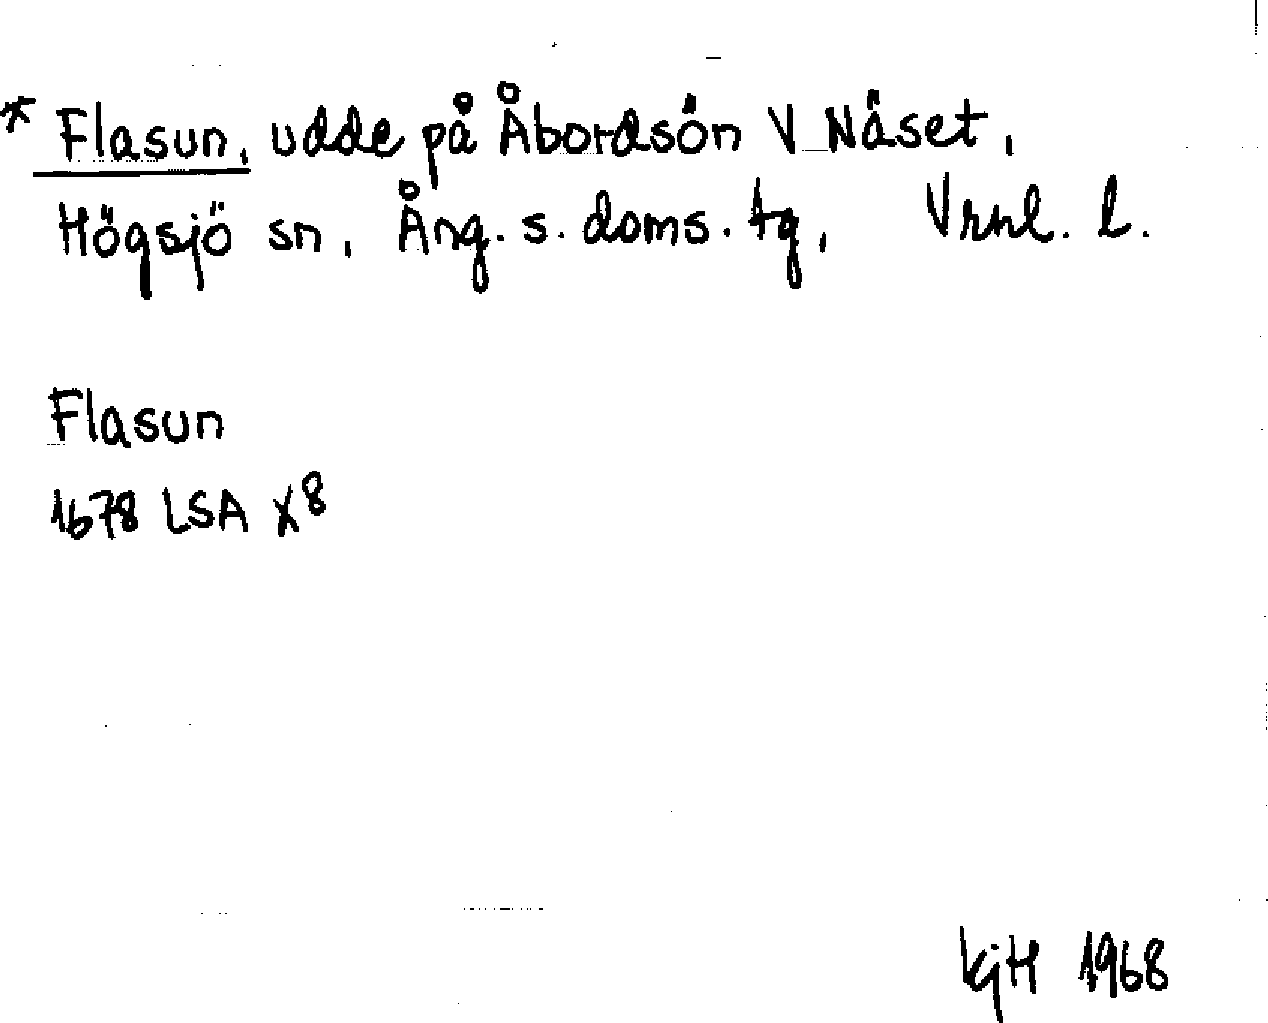 * Flasun, udde på Åbordsön V Näset,
Högsjö sn, Ång. s. doms. tg, Vrnl. l.
Flasun
1678 LSA X8
KjH 1968